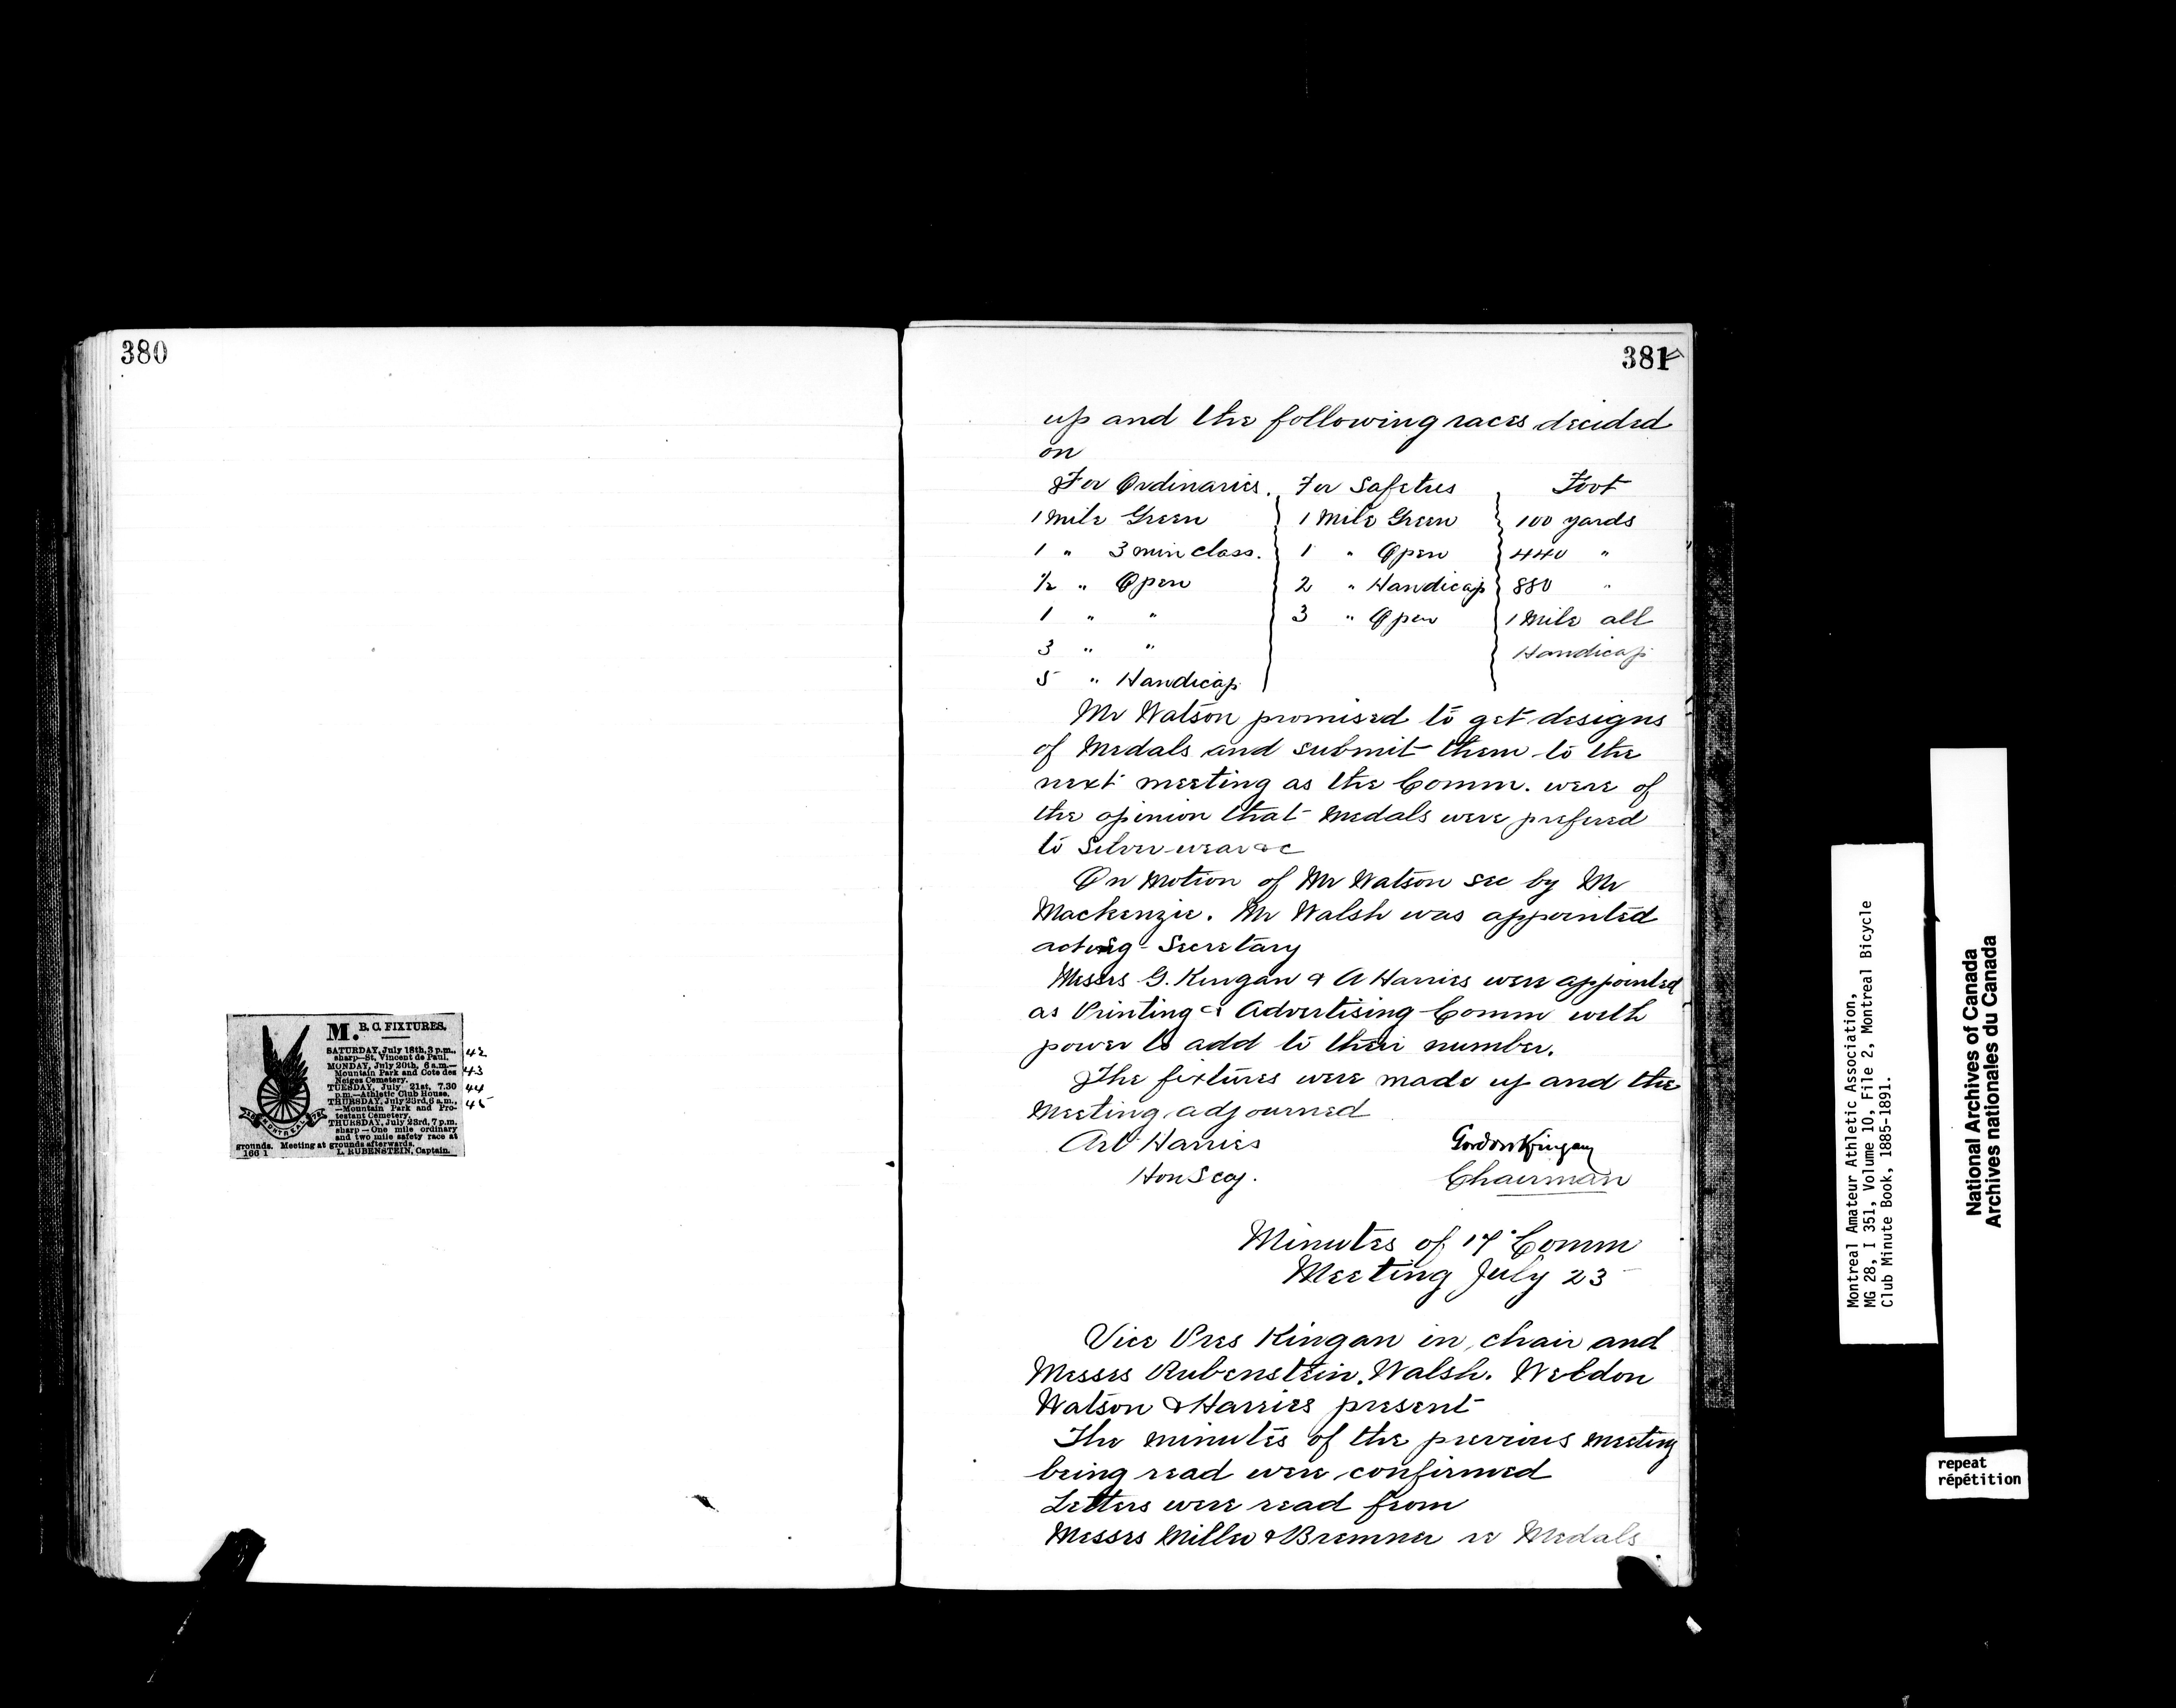 380
M. B. C. FIXTURES.
SATURDAY, July 18th, 3 p.m., 42
sharp—St. Vincent de Paul.
MONDAY, July 20th, 6 a.m.— 43
Mountain Park and Cote des
Neiges Cemetery.
TUESDAY, July 21st, 7.30 44
p.m.—Athletic Club House.
THURSDAY, July 23rd, 6 a.m., 45
—Mountain Park and Pro-
testant Cemetery.
THURSDAY, July 23rd, 7 p.m.
sharp—One mile ordinary
and two mile safety race at
grounds. Meeting at grounds afterwards.
166 1 L. RUBENSTEIN, Captain.
MONTREAL
381
up and the following races decided
on
For Ordinaries. For Safeties Foot
1 Mile Green 1 Mile Green 100 yards
1 " 3 min class. 1 " Open 440 "
1/2 " Open 2 " Handicap 880 "
1 " " 3 " Open 1 Mile all
3 " " Handicap
5 " Handicap
Mr Watson promised to get designs
of Medals and submit them to the
next meeting as the Comm. were of
the opinion that Medals were prefered
to Silver wear &c
On Motion of Mr Watson sec by Mr
Mackenzie. Mr Walsh was appointed
acting Secretary
Messrs G. Kingan & A Harries were appointed
as Printing & Advertising Comm with
power to add to their number.
The fixtures were made up and the
Meeting adjourned
Art Harries Gordon Kingan
Hon Secy. Chairman
Minutes of 17 Comm
Meeting July 23
Vice Pres Kingan in chair and
Messrs Rubenstein. Walsh. Weldon
Watson & Harries present
The minutes of the previous meeting
being read were confirmed
Letters were read from
Messrs Miller & Bremner re Medals
Montreal Amateur Athletic Association,
MG 28, I 351, Volume 10, File 2, Montreal Bicycle
Club Minute Book, 1885-1891.
National Archives of Canada
Archives nationales du Canada
repeat
répétition